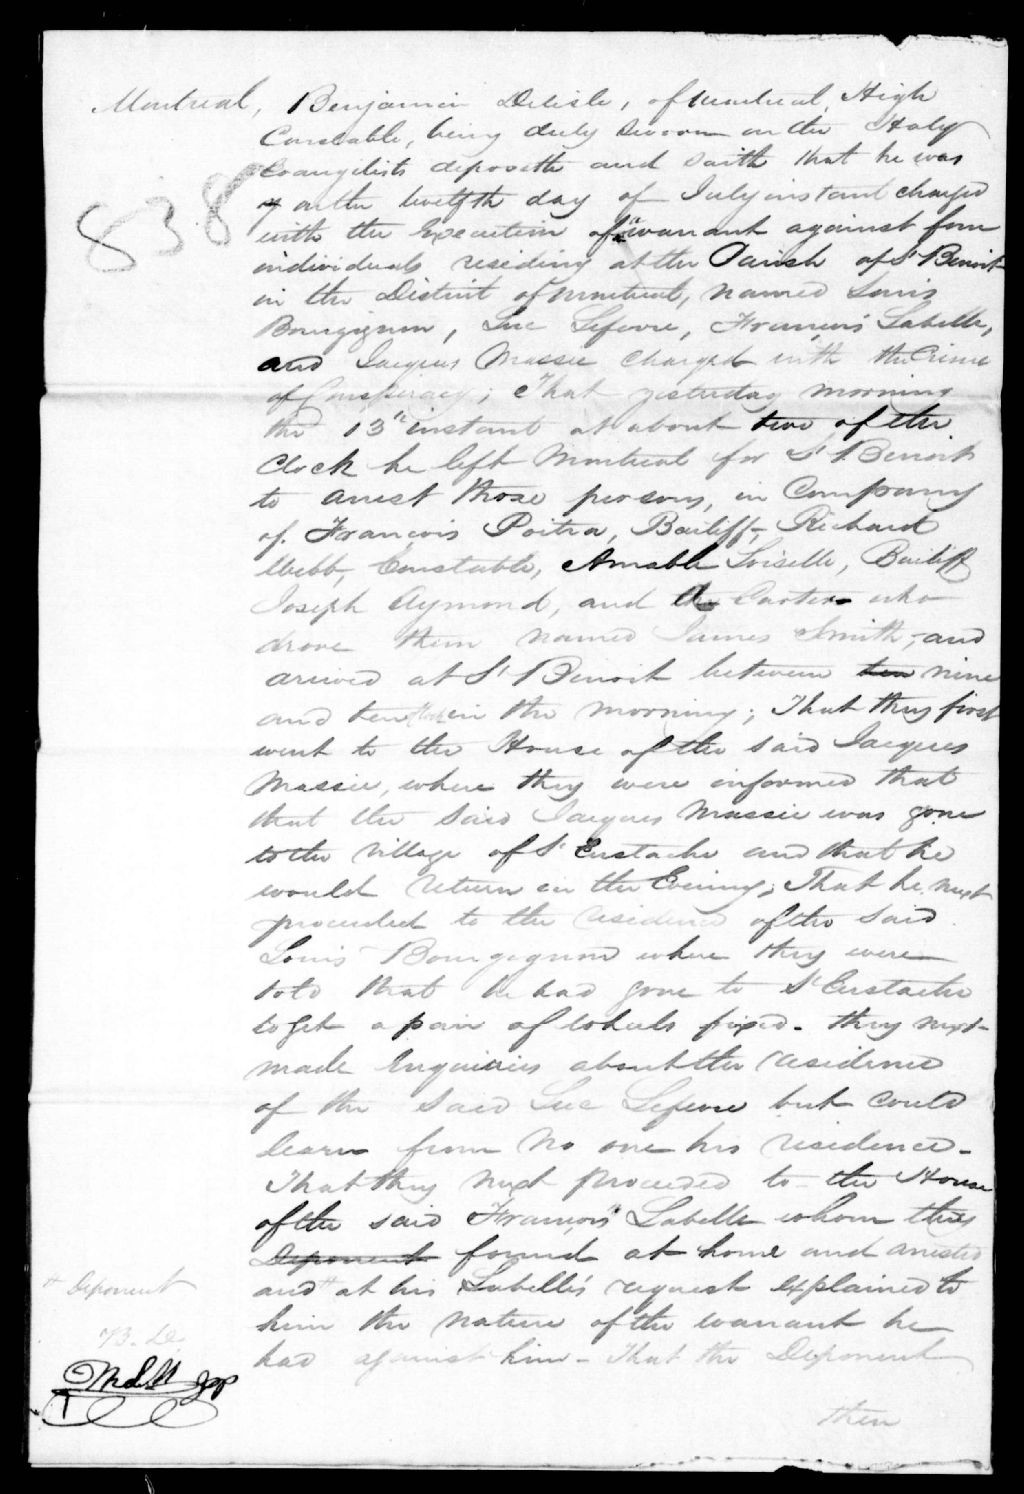 Montreal, Benjamin Delisle, of Montreal, High
Constable, being duly sworn on the Holy
Evangelists deposeth and saith that he was
838
on the twelfth day of July instant charged
with the Execution of a warrant against four
individuals residing at the Parish of St Benoit
in the District of Montreal, named Louis
Bourgignon, Luc Lefevre, François Labelle,
and Jacques Massie charged with the Crime
of Conspiracy; That yesterday morning
the 13th instant at about two of the
Clock he left Montreal for St Benoit
to arrest those persons, in Company
of François Poitra, Bailiff, Richard
Webb, Constable, Amable Loiselle, Bailiff
Joseph Aymond, and the Carter who
drove them named James Smith, and
arrived at St Benoit between ten nine
and ten in the morning; That they first
went to the House of the said Jacques
Massie, where they were informed that
that the said Jacques Massie was gone
to the village of St Eustache and that he
would return in the Evening; That he next
proceeded to the residence of the said
Louis Bourgignon where they were
told that he had gone to St Eustache
to get a pair of wheels fixed - they next
made Enquiries about the residence
of the said Luc Lefevre but could
learn from no one his residence -
That they next proceeded to the House
of the said François Labelle whom they
Deponent found at home and arrested
and + at his Labelle's request explained to
him the nature of the warrant he
had against him - That the Deponent
then
+ Deponent
B. De